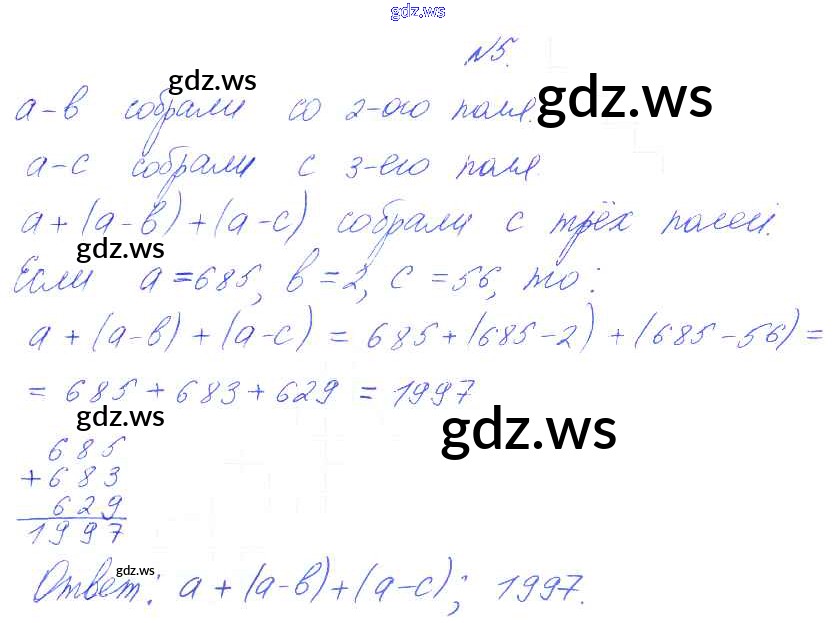 gdz.ws
№5.
gdz.ws
а-в собрали со 2-ого поля.
gdz.ws
а-с собрали с 3-его поля.
а+(а-в)+(а-с) собрали с трёх полей.
gdz.ws
Если а=685, в=2, с=56, то:
а+(а-в)+(а-с) = 685+(685-2)+(685-56)=
= 685+683+629 = 1997
gdz.ws
gdz.ws
685
+683
629
1997
gdz.ws
Ответ: а+(а-в)+(а-с); 1997.